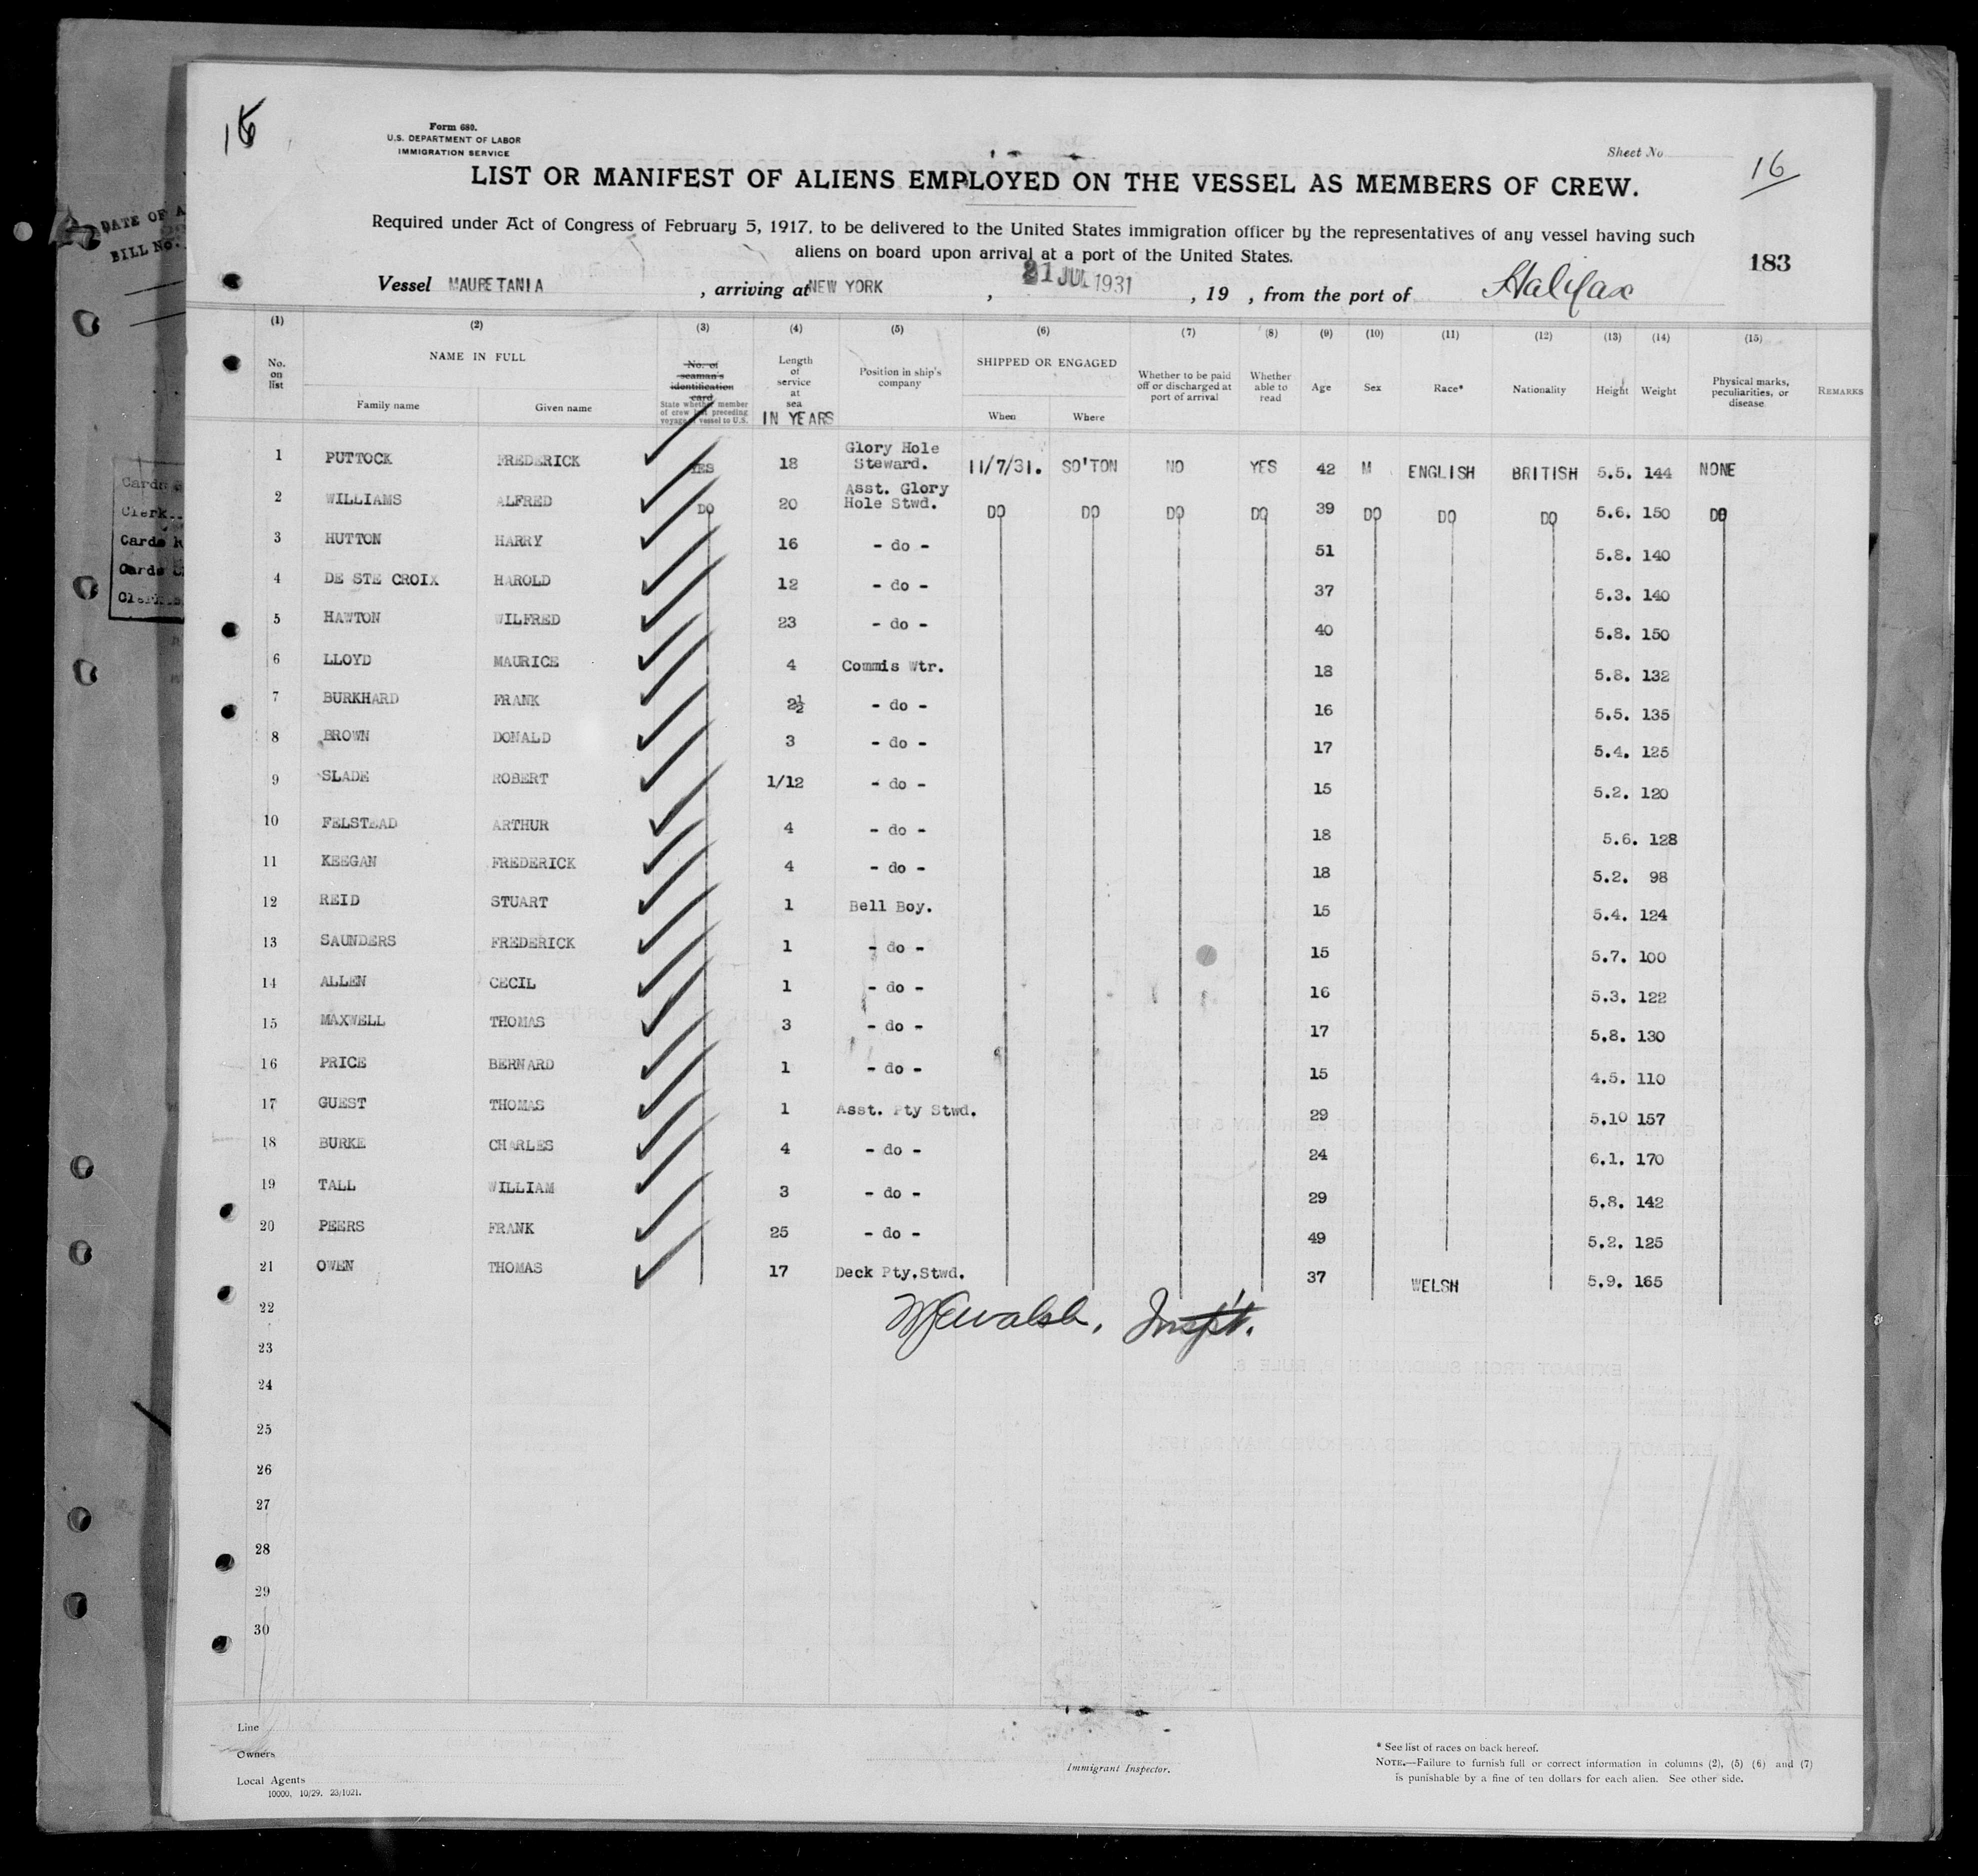 16
Form 680.
U.S. DEPARTMENT OF LABOR
IMMIGRATION SERVICE
Sheet No
16
LIST OR MANIFEST OF ALIENS EMPLOYED ON THE VESSEL AS MEMBERS OF CREW.
Required under Act of Congress of February 5, 1917, to be delivered to the United States immigration officer by the representatives of any vessel having such
aliens on board upon arrival at a port of the United States.
183
DATE OF A
BILL No.
Vessel MAURETANIA , arriving at NEW YORK , 21 JUL 1931 , 19 , from the port of Halifax
(1) (2) (3) (4) (5) (6) (7) (8) (9) (10) (11) (12) (13) (14) (15)
No. on list NAME IN FULL Family name Given name No. of seaman's identification card State whether member of crew last preceding voyage of vessel to U.S. Length of service at sea IN YEARS Position in ship's company SHIPPED OR ENGAGED When Where Whether to be paid off or discharged at port of arrival Whether able to read Age Sex Race* Nationality Height Weight Physical marks, peculiarities, or disease REMARKS
1 PUTTOCK FREDERICK YES 18 Glory Hole Steward. 11/7/31. SO'TON NO YES 42 M ENGLISH BRITISH 5.5. 144 NONE
2 WILLIAMS ALFRED DO 20 Asst. Glory Hole Stwd. DO DO DO DO 39 DO DO DO 5.6. 150 DO
3 HUTTON HARRY 16 - do - 51 5.8. 140
4 DE STE CROIX HAROLD 12 - do - 37 5.3. 140
5 HAWTON WILFRED 23 - do - 40 5.8. 150
6 LLOYD MAURICE 4 Commis Wtr. 18 5.8. 132
7 BURKHARD FRANK 2½ - do - 16 5.5. 135
8 BROWN DONALD 3 - do - 17 5.4. 125
9 SLADE ROBERT 1/12 - do - 15 5.2. 120
10 FELSTEAD ARTHUR 4 - do - 18 5.6. 128
11 KEEGAN FREDERICK 4 - do - 18 5.2. 98
12 REID STUART 1 Bell Boy. 15 5.4. 124
13 SAUNDERS FREDERICK 1 - do - 15 5.7. 100
14 ALLEN CECIL 1 - do - 16 5.3. 122
15 MAXWELL THOMAS 3 - do - 17 5.8. 130
16 PRICE BERNARD 1 - do - 15 4.5. 110
17 GUEST THOMAS 1 Asst. Pty Stwd. 29 5.10 157
18 BURKE CHARLES 4 - do - 24 6.1. 170
19 TALL WILLIAM 3 - do - 29 5.8. 142
20 PEERS FRANK 25 - do - 49 5.2. 125
21 OWEN THOMAS 17 Deck Pty.Stwd. 37 WELSH 5.9. 165
22
Walsh, Insp't.
23
24
25
26
27
28
29
30
Line
Owners
Local Agents
10000, 10/29. 23/1021.
Immigrant Inspector.
* See list of races on back hereof.
NOTE.—Failure to furnish full or correct information in columns (2), (5) (6) and (7)
is punishable by a fine of ten dollars for each alien. See other side.